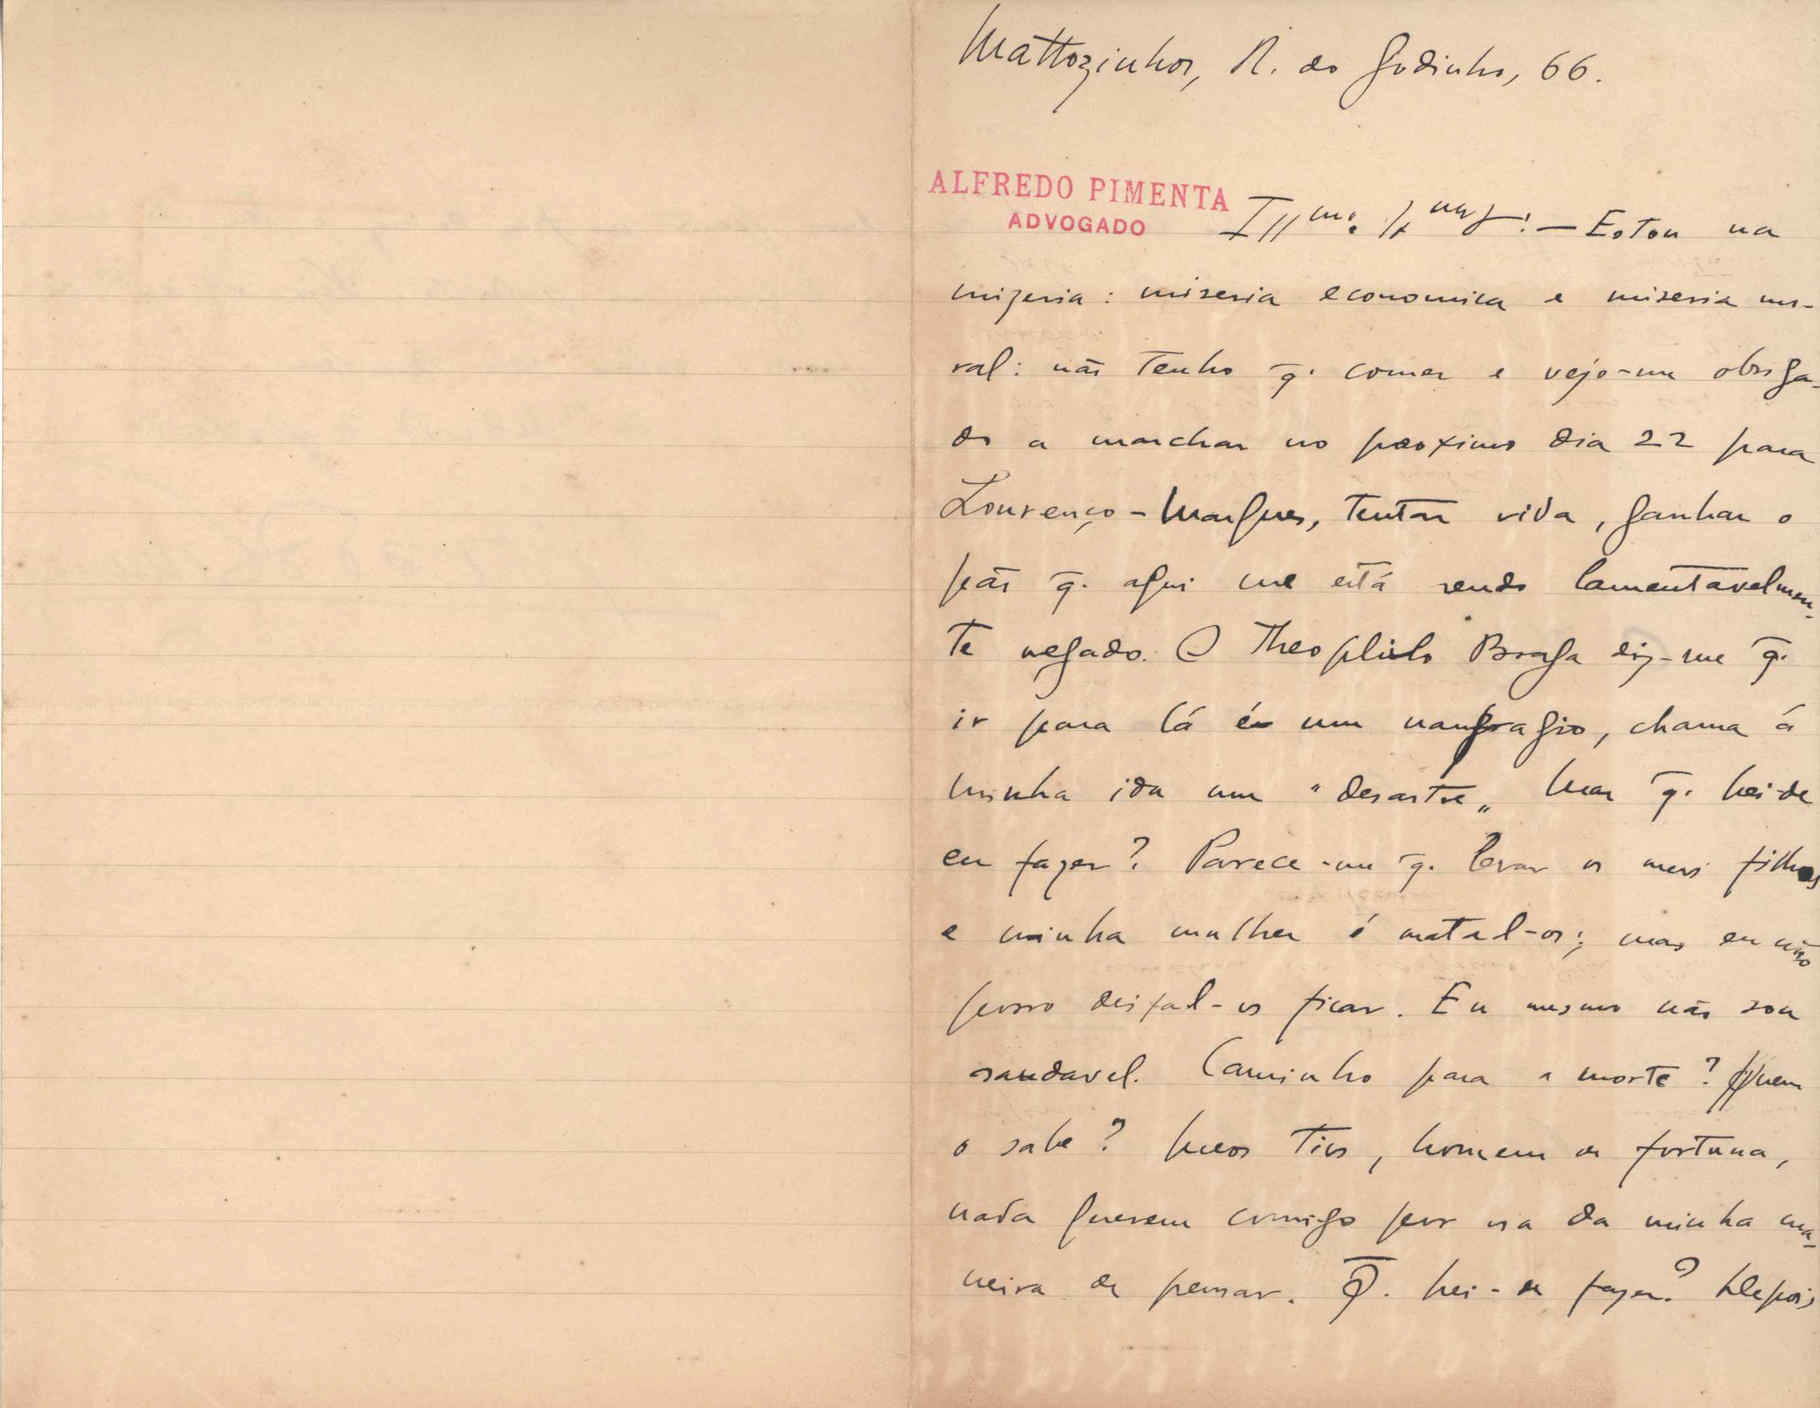 Mattozinhos, R. do Godinho, 66.
ALFREDO PIMENTA
ADVOGADO
Ill.mo — Estou na
mizeria: miseria economica e miseria mo-
ral: não tenho q̄. comer e vejo-me obriga-
do a marchar no proximo dia 22 para
Lourenço-Marques, tentar vida, ganhar o
pão q̄. aqui me está sendo lamentavelmen-
te negado. O Theophilo Braga diz-me q̄.
ir para lá é um naufragio, chama á
minha ida um "desastre„ Mas q̄. hei-de
eu fazer? Parece-me q̄. levar os meus filhos
e minha mulher é matal-os; mas eu não
posso deixal-os ficar. Eu mesmo não sou
saudavel. Caminho para a morte? Quem
o sabe? Meos Tios, homem de fortuna,
nada querem comigo por via da minha ma-
neira de pensar. Q̄. hei-de fazer? Depois